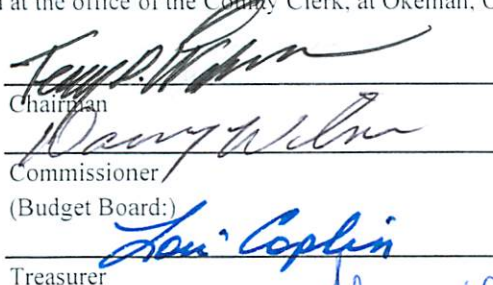 at the office of the County Clerk, at Okemah,
Chairman
Danny Wilson
Commissioner
(Budget Board:)
Lori Coplin
Treasurer